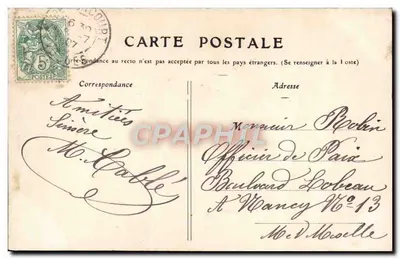 CARTE POSTALE
La Correspondance au recto n'est pas acceptée par tous les pays étrangers. (Se renseigner à la Poste)
Correspondance
Adresse
Amitiés
Sincère
M. Hablé
Monsieur Robin
Officier de Paix
Boulevard Lobeau
A Nancy N° 13
M et Moselle
CPAPHIL
5